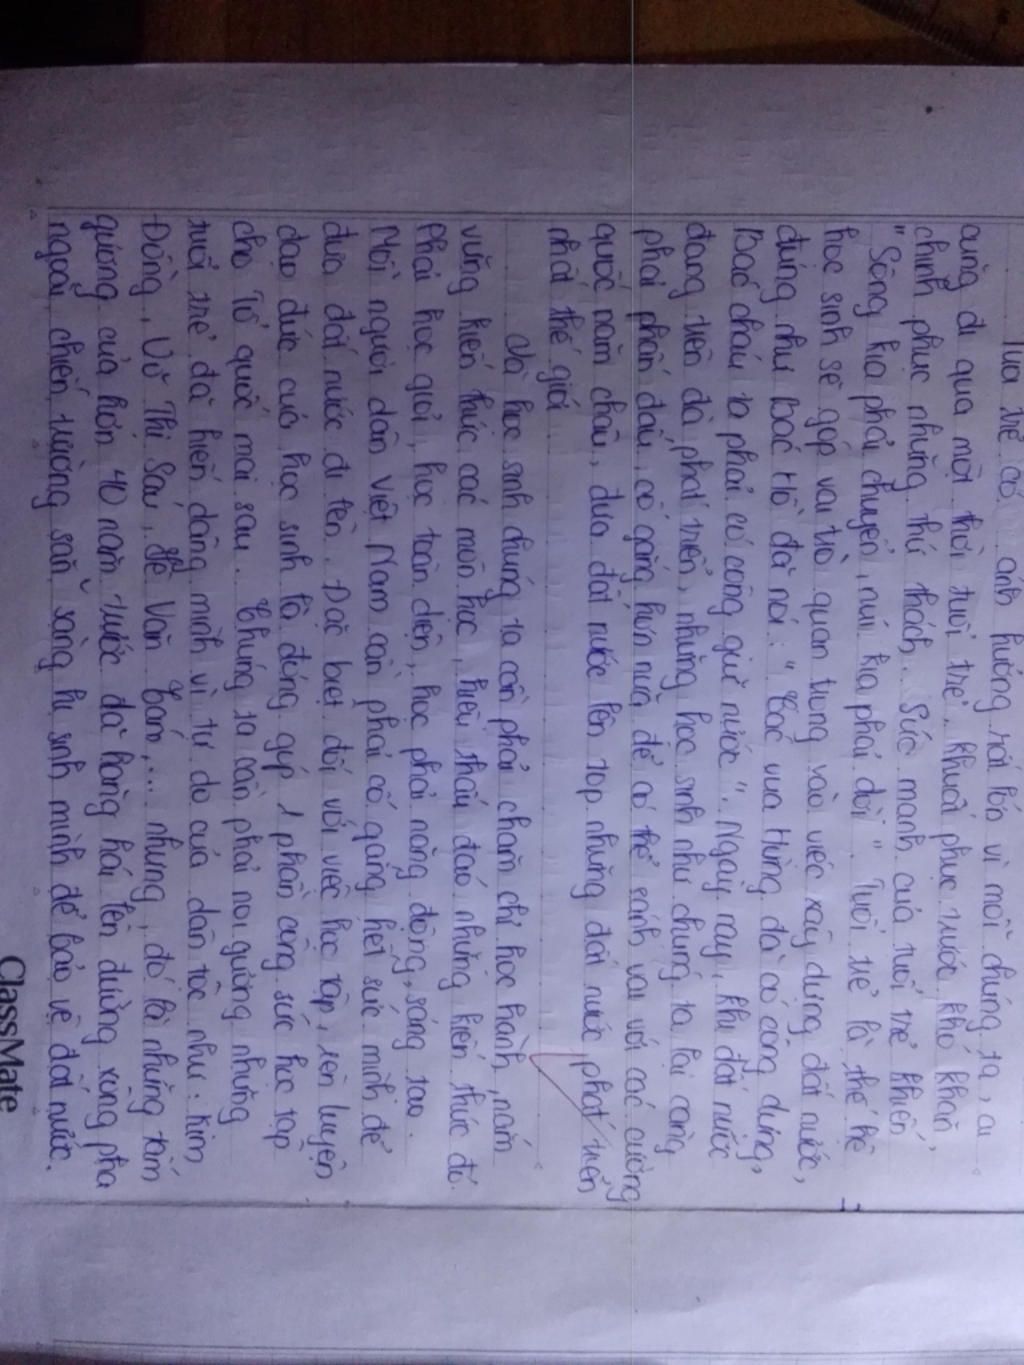 Tuổi trẻ có ảnh hưởng rất lớn vì mỗi chúng ta, ai
cũng đi qua một thời tuổi trẻ, khuất phục trước khó khăn,
chinh phục những thử thách. Sức mạnh của tuổi trẻ khiến
"Sông kia phải chuyển, núi kia phải dời". Tuổi trẻ là thế hệ
học sinh sẽ góp vai trò quan trọng vào việc xây dựng đất nước,
đúng như Bác Hồ đã nói: "Các vua Hùng đã có công dựng,
Bác cháu ta phải có công giữ nước". Ngày nay, khi đất nước
đang trên đà phát triển, những học sinh như chúng ta lại càng
phải phấn đấu, cố gắng hơn nữa để có thể sánh vai với các cường
quốc năm châu, đưa đất nước lên top những đất nước phát triển
nhất thế giới.
Là học sinh chúng ta cần phải chăm chỉ học hành, nắm
vững kiến thức các môn học, hiểu thấu đáo những kiến thức đó.
Phải học giỏi, học toàn diện, học phải năng động, sáng tạo.
Mỗi người dân Việt Nam cần phải cố gắng hết sức mình để
đưa đất nước đi lên. Đặc biệt đối với việc học tập, rèn luyện
đạo đức của học sinh là đóng góp 1 phần công sức học tập
cho Tổ quốc mai sau. Chúng ta cần phải noi gương những
tuổi trẻ đã hiến dâng mình vì tự do của dân tộc như: Kim
Đồng, Võ Thị Sáu, Bế Văn Đám,... nhưng, đó là những tấm
gương của hơn 40 năm trước đã hăng hái lên đường xung pha
ngoài chiến trường sẵn sàng hi sinh mình để bảo vệ đất nước.
ClassMate